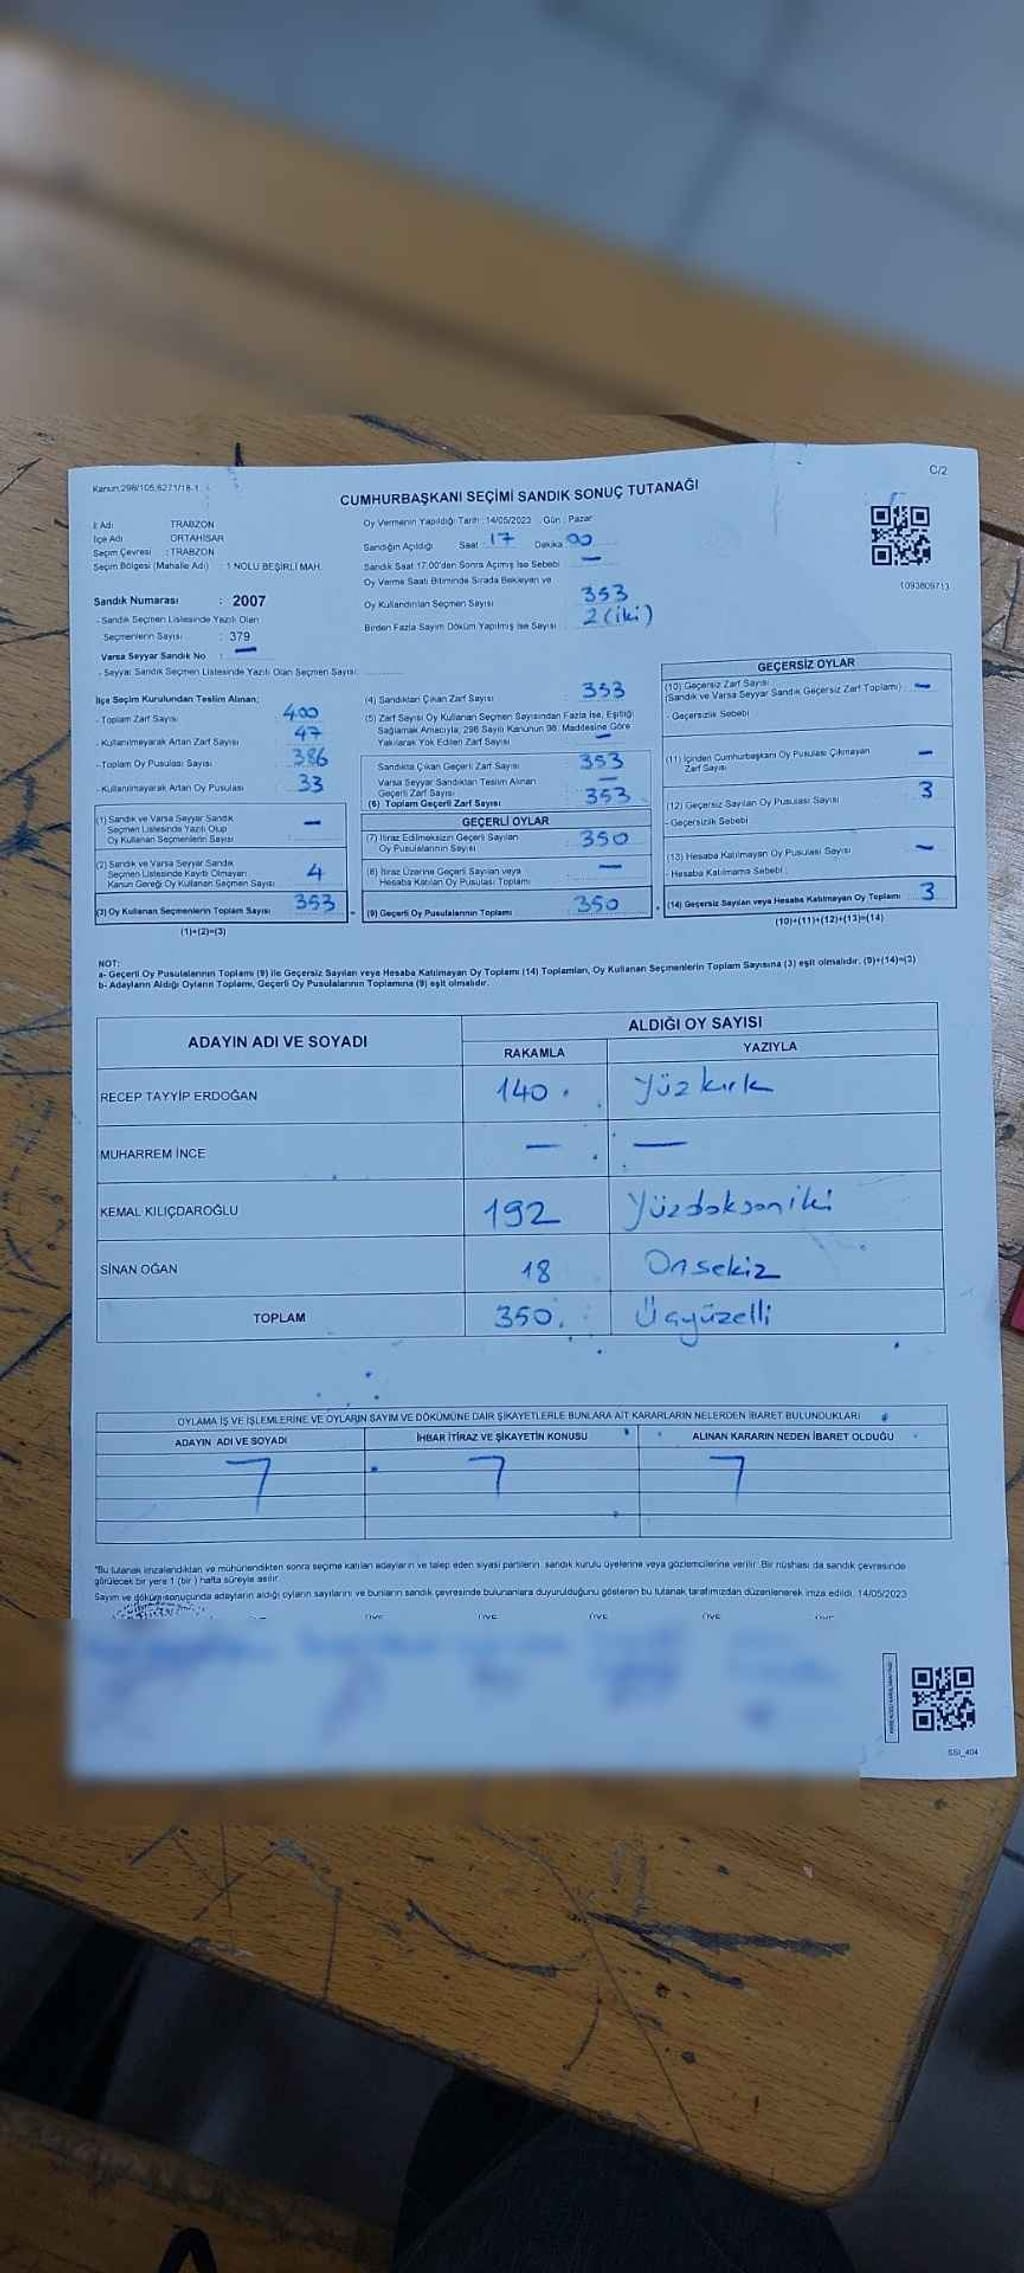 Kanun,298/105,6271/18-1
C/2
CUMHURBAŞKANI SEÇİMİ SANDIK SONUÇ TUTANAĞI
İl Adı TRABZON
İlçe Adı ORTAHİSAR
Seçim Çevresi : TRABZON
Seçim Bölgesi (Mahalle Adı) : 1 NOLU BEŞİRLİ MAH.
Sandık Numarası : 2007
- Sandık Seçmen Listesinde Yazılı Olan
Seçmenlerin Sayısı : 379
Varsa Seyyar Sandık No : —
- Seyyar Sandık Seçmen Listesinde Yazılı Olan Seçmen Sayısı:
Oy Vermenin Yapıldığı Tarih : 14/05/2023 Gün : Pazar
Sandığın Açıldığı Saat : 17 Dakika : 00
Sandık Saat 17.00'den Sonra Açımış İse Sebebi —
Oy Verme Saati Bitiminde Sırada Bekleyen ve
Oy Kullandırılan Seçmen Sayısı 353
Birden Fazla Sayım Döküm Yapılmış İse Sayısı 2 (iki)
1093809713
İlçe Seçim Kurulundan Teslim Alınan:
- Toplam Zarf Sayısı 400
- Kullanılmayarak Artan Zarf Sayısı 47
- Toplam Oy Pusulası Sayısı 386
- Kullanılmayarak Artan Oy Pusulası 33
(1) Sandık ve Varsa Seyyar Sandık
Seçmen Listesinde Yazılı Olup
Oy Kullanan Seçmenlerin Sayısı —
(2) Sandık ve Varsa Seyyar Sandık
Seçmen Listesinde Kayıtlı Olmayan
Kanun Gereği Oy Kullanan Seçmen Sayısı 4
(3) Oy Kullanan Seçmenlerin Toplam Sayısı 353
(1)+(2)=(3)
(4) Sandıktan Çıkan Zarf Sayısı 353
(5) Zarf Sayısı Oy Kullanan Seçmen Sayısından Fazla İse, Eşitliği
Sağlamak Amacıyla, 298 Sayılı Kanunun 98. Maddesine Göre
Yakılarak Yok Edilen Zarf Sayısı —
Sandıkta Çıkan Geçerli Zarf Sayısı 353
Varsa Seyyar Sandıktan Teslim Alınan
Geçerli Zarf Sayısı —
(6) Toplam Geçerli Zarf Sayısı 353
GEÇERLİ OYLAR
(7) İtiraz Edilmeksizin Geçerli Sayılan
Oy Pusulalarının Sayısı 350
(8) İtiraz Üzerine Geçerli Sayılan veya
Hesaba Katılan Oy Pusulası Toplamı —
(9) Geçerli Oy Pusulalarının Toplamı 350
GEÇERSİZ OYLAR
(10) Geçersiz Zarf Sayısı
(Sandık ve Varsa Seyyar Sandık Geçersiz Zarf Toplamı) —
- Geçersizlik Sebebi
(11) İçinden Cumhurbaşkanı Oy Pusulası Çıkmayan
Zarf Sayısı —
(12) Geçersiz Sayılan Oy Pusulası Sayısı 3
- Geçersizlik Sebebi
(13) Hesaba Katılmayan Oy Pusulası Sayısı —
- Hesaba Katılmama Sebebi :
(14) Geçersiz Sayılan veya Hesaba Katılmayan Oy Toplamı 3
(10)+(11)+(12)+(13)=(14)
NOT:
a- Geçerli Oy Pusulalarının Toplamı (9) ile Geçersiz Sayılan veya Hesaba Katılmayan Oy Toplamı (14) Toplamları, Oy Kullanan Seçmenlerin Toplam Sayısına (3) eşit olmalıdır. (9)+(14)=(3)
b- Adayların Aldığı Oyların Toplamı, Geçerli Oy Pusulalarının Toplamına (9) eşit olmalıdır.
ADAYIN ADI VE SOYADI ALDIĞI OY SAYISI
RAKAMLA YAZIYLA
RECEP TAYYİP ERDOĞAN 140. Yüzkırk
MUHARREM İNCE — —
KEMAL KILIÇDAROĞLU 192 Yüzdoksaniki
SİNAN OĞAN 18 Onsekiz
TOPLAM 350. Üçyüzelli
OYLAMA İŞ VE İŞLEMLERİNE VE OYLARIN SAYIM VE DÖKÜMÜNE DAİR ŞİKAYETLERLE BUNLARA AİT KARARLARIN NELERDEN İBARET BULUNDUKLARI
ADAYIN ADI VE SOYADI İHBAR İTİRAZ VE ŞİKAYETİN KONUSU ALINAN KARARIN NEDEN İBARET OLDUĞU
*Bu tutanak imzalandıktan ve mühürlendikten sonra seçime katılan adayların ve talep eden siyasi partilerin sandık kurulu üyelerine veya gözlemcilerine verilir. Bir nüshası da sandık çevresinde
görülecek bir yere 1 (bir ) hafta süreyle asılır.
Sayım ve döküm sonucunda adayların aldığı oyların sayılarını ve bunların sandık çevresinde bulunanlara duyurulduğunu gösteren bu tutanak tarafımızdan düzenlenerek imza edildi. 14/05/2023
SSI_404